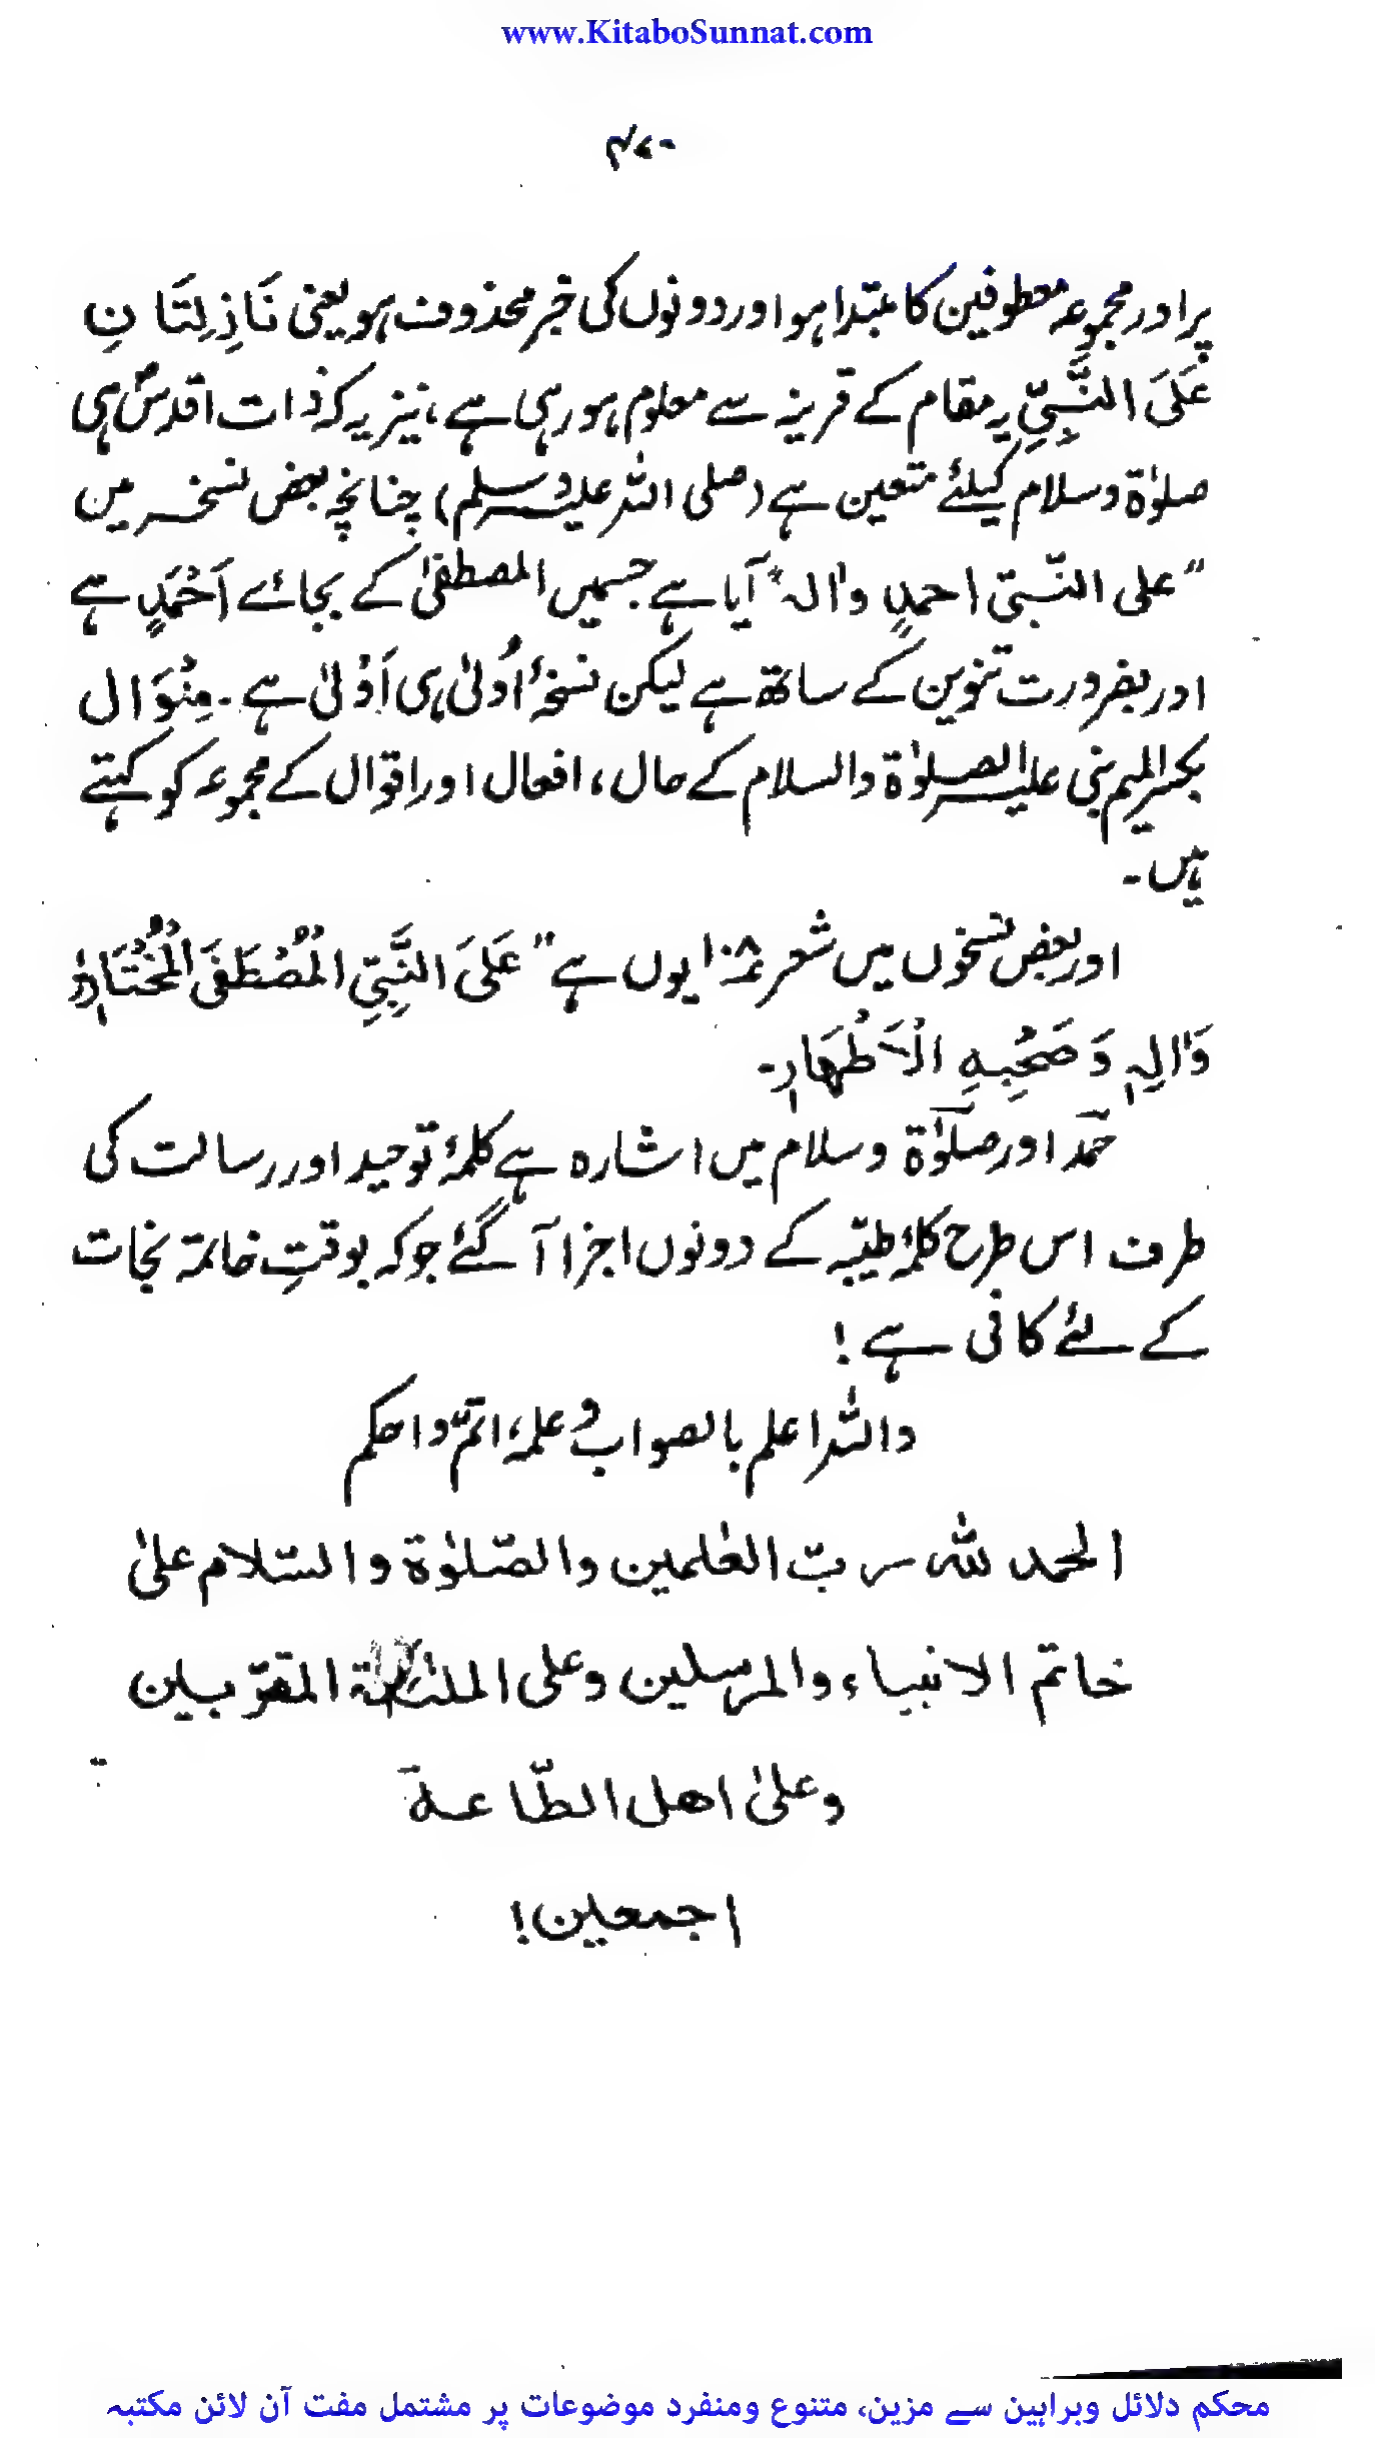 www.KitaboSunnat.com
۴۷۰
پر اور مجموعہ معطوفین کا مبتدا ہو اور دونوں کی خبر محذوف ہو یعنی نَازِلَتَانِ
عَلَی النَّبِیِّ یہ مقام کے قرینہ سے معلوم ہو رہی ہے، نیز یہ کہ ذات اقدسؐ ہی
صلوٰۃ وسلام کیلئے متعین ہے (صلی اللہ علیہ وسلم) چنانچہ بعض نسخہ میں
”علی النّبیّ احمدٍ واٰلہ“ آیا ہے جسمیں المصطفیٰ کے بجائے اَحْمَدٍ ہے
اور بضرورت تنوین کے ساتھ ہے لیکن نسخۂ اُولیٰ ہی اَوْلیٰ ہے۔ مِنْوَال
بکسر المیم نبی علیہ الصلوٰۃ والسلام کے حال، افعال اور اقوال کے مجموعہ کو کہتے
ہیں۔
اور بعض نسخوں میں شعر نمبر ۱۰۸ یوں ہے ”عَلَی النَّبِیِّ الْمُصْطَفَی الْمُخْتَارِ
وَاٰلِہٖ وَصَحْبِہِ الْاَطْہَارِ۔
حمد اور صلوٰۃ وسلام میں اشارہ ہے کلمۂ توحید اور رسالت کی
طرف اس طرح کلمۂ طیّبہ کے دونوں اجزا آ گئے جو کہ بوقتِ خاتمہ نجات
کے لئے کافی ہے!
واللہ اعلم بالصواب وعلمہٗ اتمّ واحکم
الحمد للہ ربّ العٰلمین والصّلوٰۃ والسّلام علیٰ
خاتم الانبیاء والمرسلین وعلی الملٰئکۃ المقرّبین
وعلیٰ اھل الطّاعۃ
اجمعین!
محکم دلائل وبراہین سے مزین، متنوع ومنفرد موضوعات پر مشتمل مفت آن لائن مکتبہ